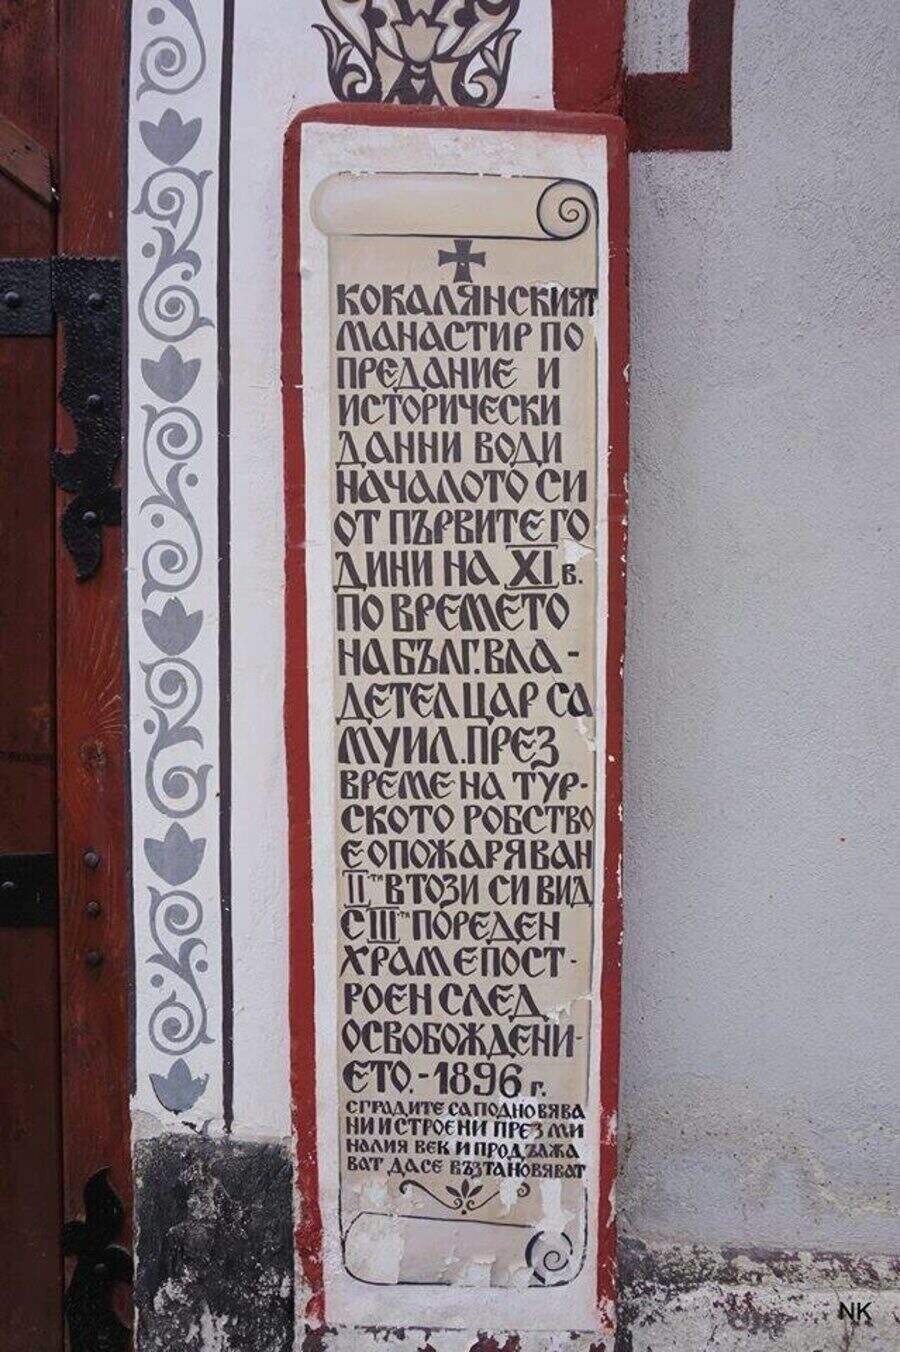 КОКАЛЯНСКИЯТ
МАНАСТИР ПО
ПРЕДАНИЕ И
ИСТОРИЧЕСКИ
ДАННИ ВОДИ
НАЧАЛОТО СИ
ОТ ПЪРВИТЕ ГО
ДИНИ НА XI В.
ПО ВРЕМЕТО
НА БЪЛГ. ВЛА-
ДЕТЕЛ ЦАР СА
МУИЛ. ПРЕЗ
ВРЕМЕ НА ТУР-
СКОТО РОБСТВО
Е ОПОЖАРЯВАН
II ТИ В ТОЗИ СИ ВИД
С III ТИ ПОРЕДЕН
ХРАМ Е ПОСТ-
РОЕН СЛЕД
ОСВОБОЖДЕНИ-
ЕТО. - 1896 г.
СГРАДИТЕ СА ПОДНОВЯВА
НИ И СТРОЕНИ ПРЕЗ МИ
НАЛИЯ ВЕК И ПРОДЪЛЖА
ВАТ ДА СЕ ВЪЗТАНОВЯВАТ
NK